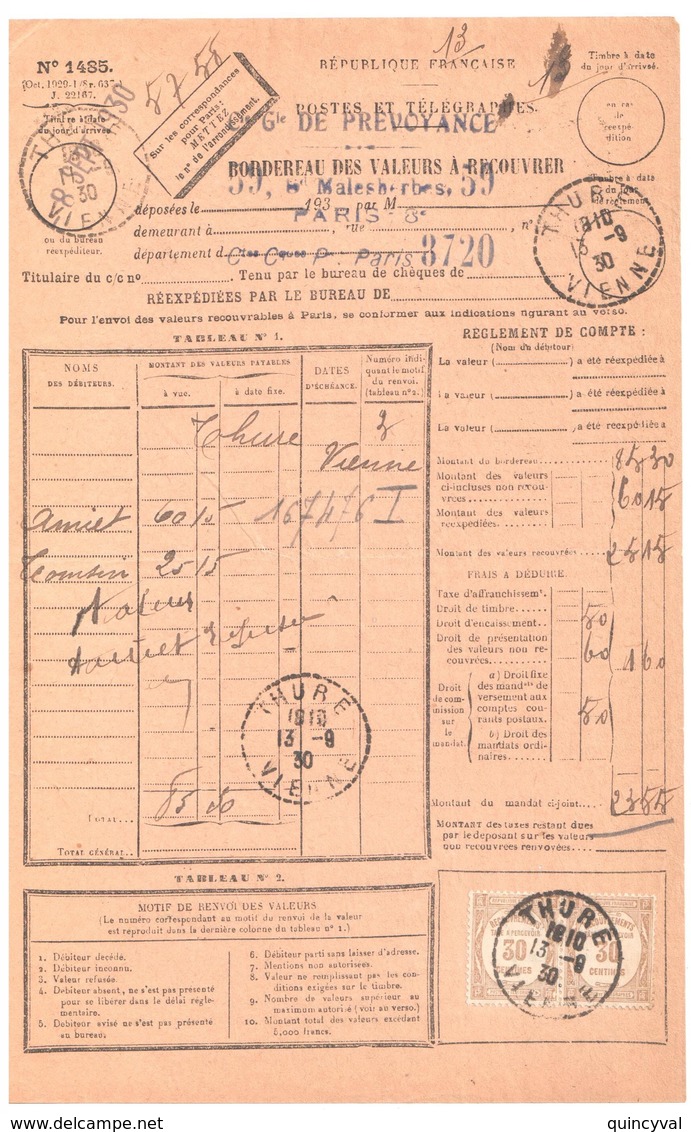 N° 1485.
(Oct. 1929-1/8 r. 637.)
J. 22167.
Timbre à date
du jour d'arrivée
THURE
8-9
30
VIENNE
ou du bureau
réexpéditeur.
57 58
Sur les correspondances
pour Paris:
METTEZ
le n° de l'arrondissement.
13
13
RÉPUBLIQUE FRANÇAISE
POSTES ET TÉLÉGRAPHES.
Gle DE PRÉVOYANCE
BORDEREAU DES VALEURS À RECOUVRER
59, Bd Malesherbes, 59
PARIS 8e
déposées le 193 par M
demeurant à , rue , n°
département d
Ctes Cts P. Paris 3720
Titulaire du c/c n° . Tenu par le bureau de chèques de
RÉEXPÉDIÉES PAR LE BUREAU DE
Timbre à date
du jour d'arrivée.
en cas
de
réexpé-
dition
Timbre à date
du jour
de règlement
THURE
1810
13 -9
30
VIENNE
Pour l'envoi des valeurs recouvrables à Paris, se conformer aux indications figurant au verso.
TABLEAU N° 1.
NOMS
DES DÉBITEURS.
MONTANT DES VALEURS PAYABLES
à vue.
à date fixe.
DATES
D'ÉCHÉANCE.
Numéro indi-
quant le motif
du renvoi.
(tableau n° 2.)
Thure 3
Vienne
Amiet 60 15 167476 I
Tomsin 25 15
Valeur
Amiet refusée
THURE
1810
13 -9
30
VIENNE
TOTAL... 85 30
TOTAL GÉNÉRAL..
RÈGLEMENT DE COMPTE :
(Nom du débiteur)
La valeur ( ) a été réexpédiée à
La valeur ( ) a été réexpédiée à
La valeur ( ) a été réexpédiée à
Montant du bordereau 85 30
Montant des valeurs
ci-incluses non recou-
vrées 60 15
Montant des valeurs
réexpédiées.
Montant des valeurs recouvrées 25 15
FRAIS A DÉDUIRE.
Taxe d'affranchissemt.
Droit de timbre
Droit d'encaissement 50
Droit de présentation
des valeurs non re-
couvrées 60
1 60
Droit
de com-
mission
sur
le
mandat.
a) Droit fixe
des mandats de
versement aux
comptes cou-
rants postaux. 50
b) Droit des
mandats ordi-
naires
Montant du mandat ci-joint 23 55
MONTANT des taxes restant dues
par le déposant sur les valeurs
non recouvrées renvoyées
TABLEAU N° 2.
MOTIF DE RENVOI DES VALEURS.
(Le numéro correspondant au motif du renvoi de la valeur
est reproduit dans la dernière colonne du tableau n° 1.)
1. Débiteur décédé.
2. Débiteur inconnu.
3. Valeur refusée.
4. Débiteur absent, ne s'est pas présenté
pour se libérer dans le délai régle-
mentaire.
5. Débiteur avisé ne s'est pas présenté
au bureau.
6. Débiteur parti sans laisser d'adresse.
7. Mentions non autorisées.
8. Valeur ne remplissant pas les con-
ditions exigées sur le timbre.
9. Nombre de valeurs supérieur au
maximum autorisé (voir au verso.)
10. Montant total des valeurs excédant
5,000 francs.
30
CENTIMES
30
CENTIMES
THURE
1810
13 -9
30
VIENNE
quincyval